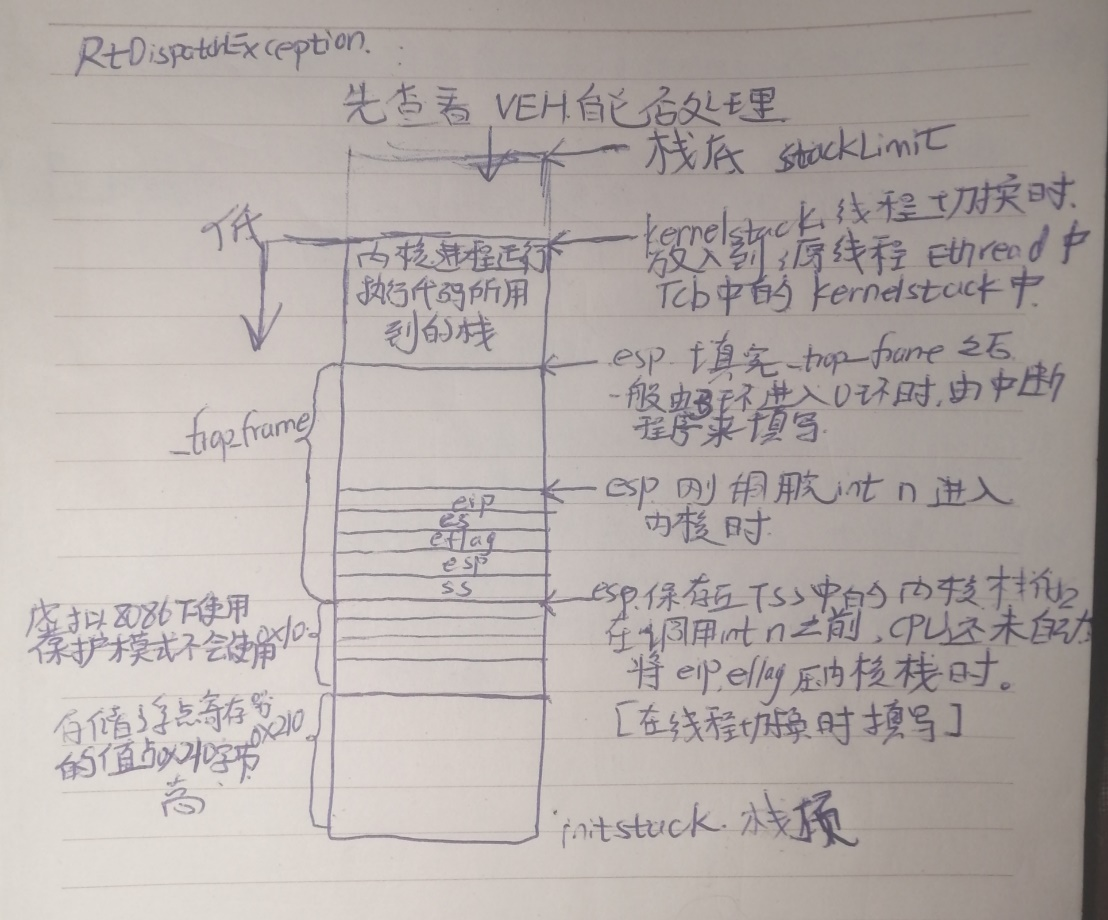 RtDispatchException.
先查看 VEH.自己否处理
栈底 stackLimit
低
kernelstack, 线程切换时.
放入到 源线程 Ethread 中
Tcb中的 kernelstack 中.
内核进程正行
执行代码所用
到的栈
esp. 填完_trap_frame 之后
一般由3环进入0环时,由中断
程序来填写.
_trap_frame
esp 刚调用完int n 进入
内核时.
eip
es
eflag
esp
ss
esp.保存在Tss中的 内核栈
在调用int n之前,CPU还未自动
将 eip,eflag 压内核栈时。
[在线程切换时填写]
虚拟8086下使用
保护模式不会使用0x10.
存储浮点寄存器
的值占0x210字节
0x210
高
initstack. 栈顶